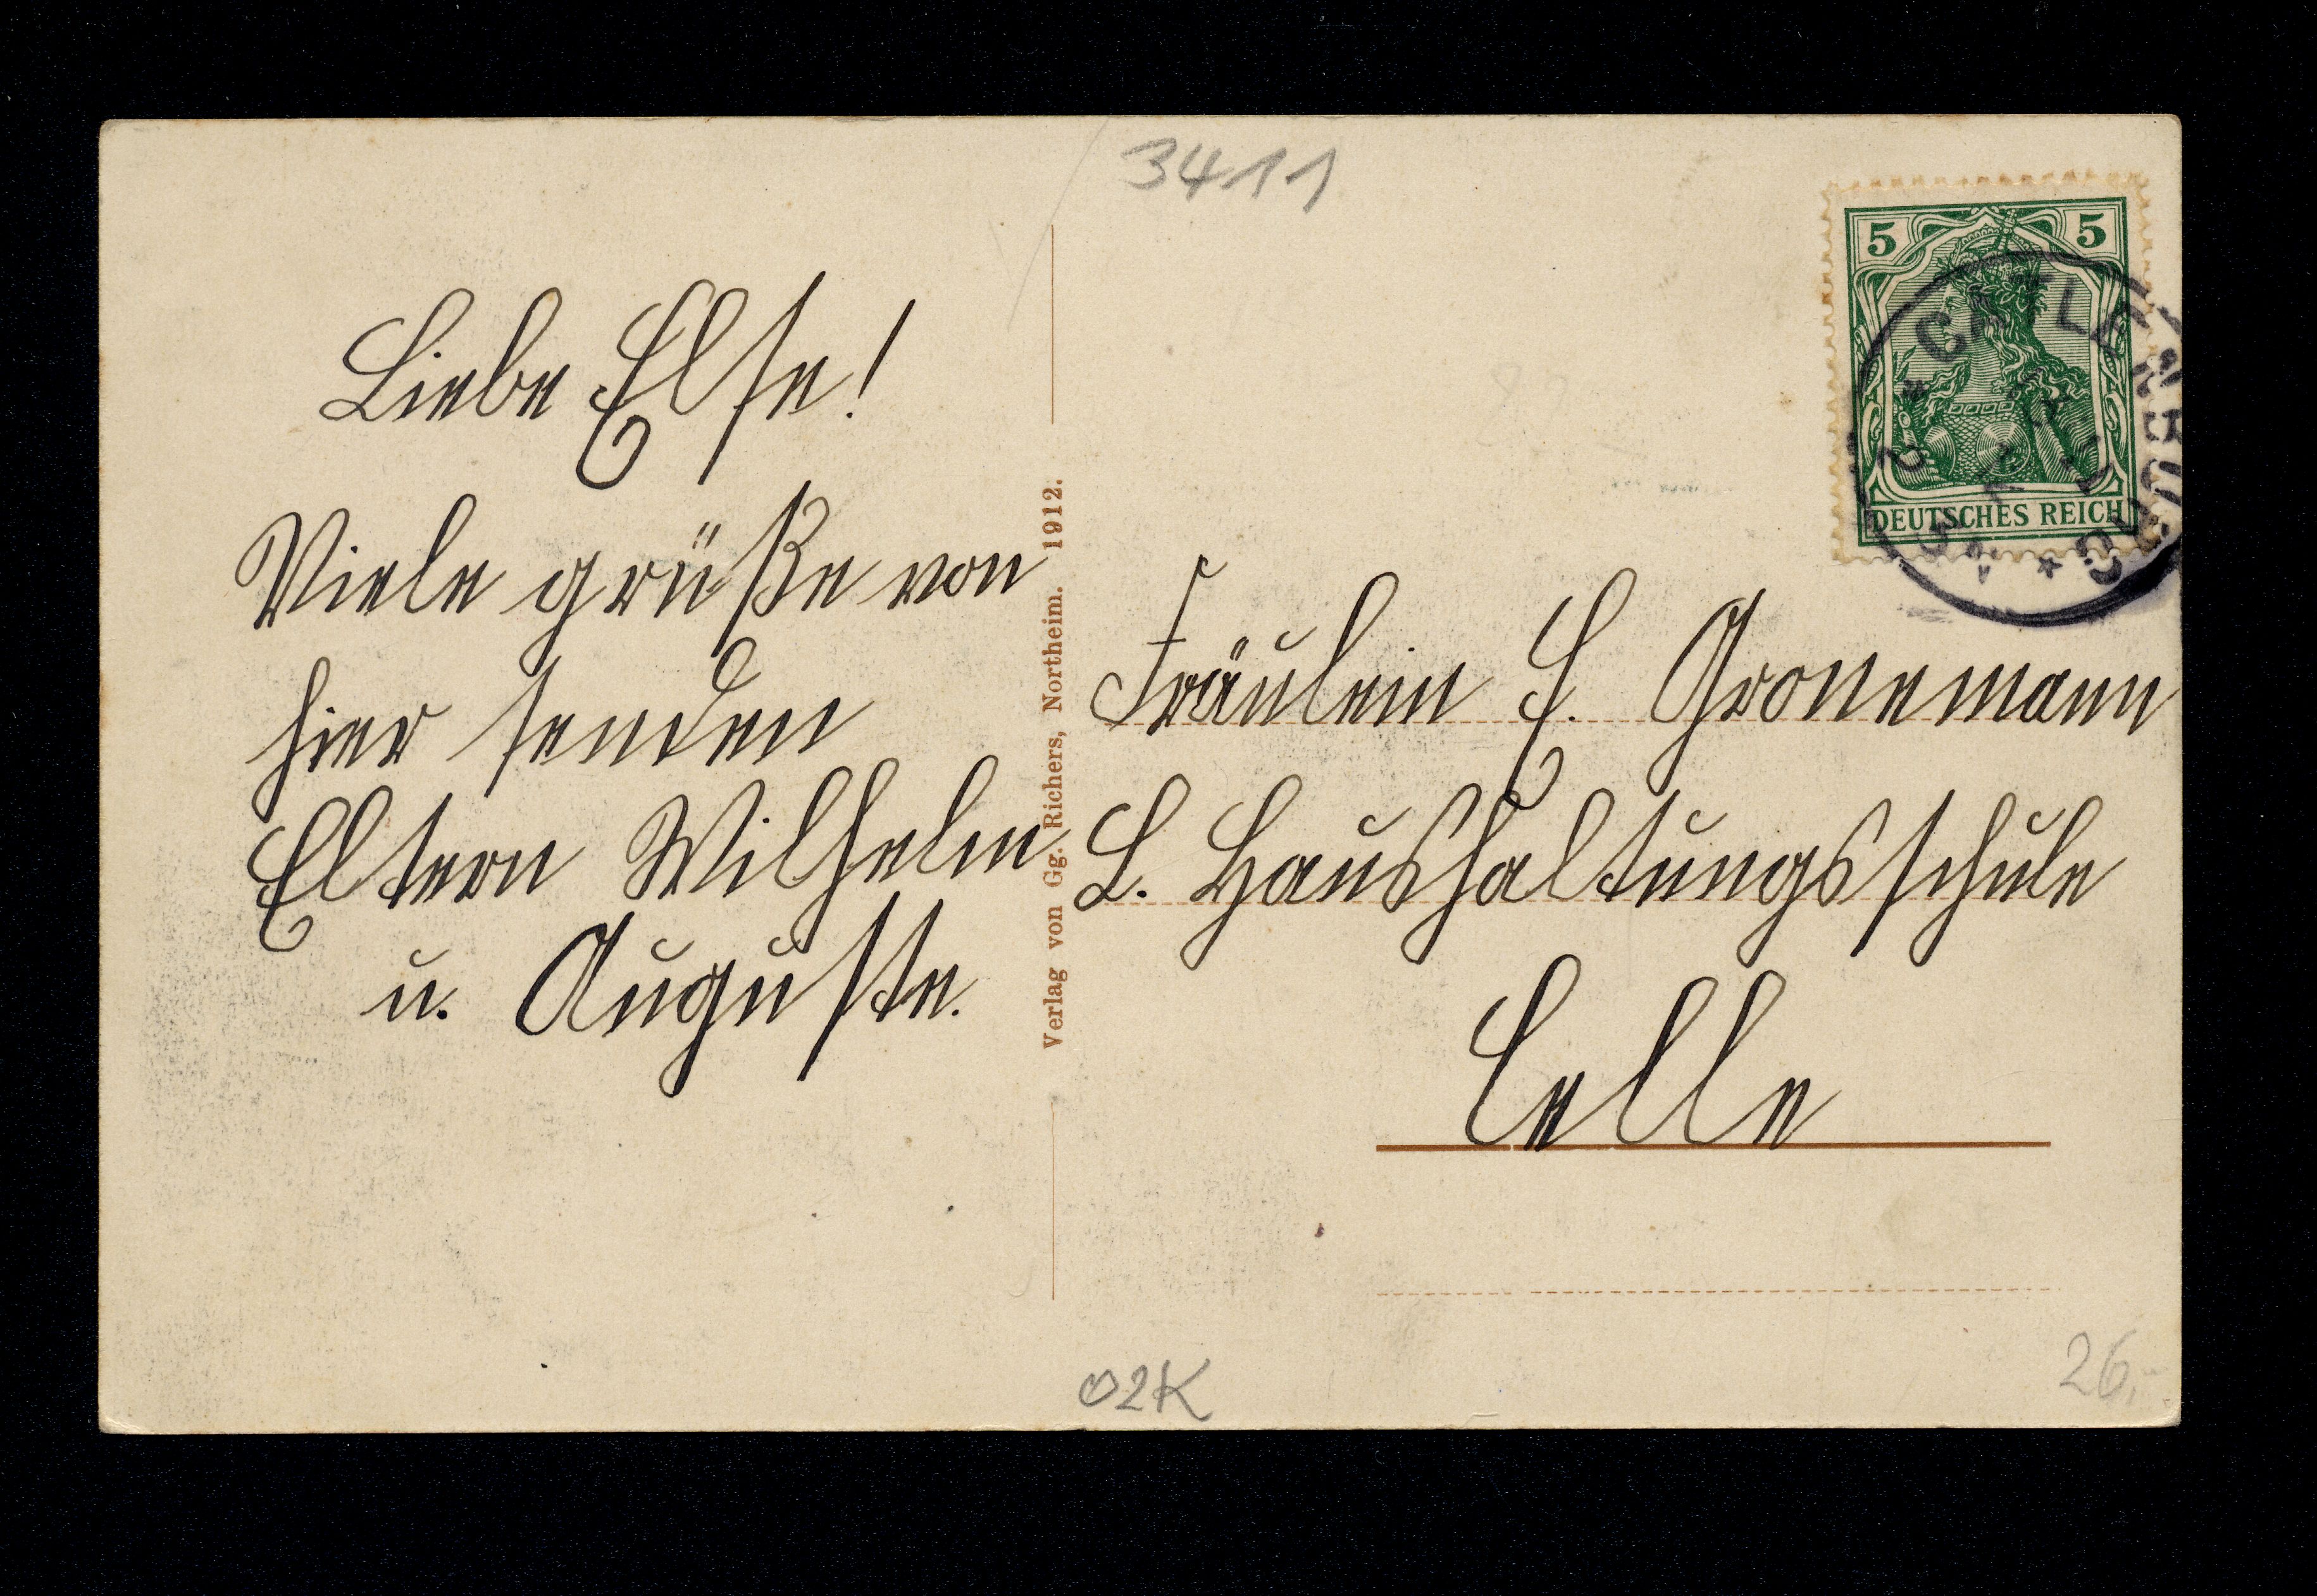 3411
Liebe Else!
Viele grüße von
hier senden
Eltern Wilhelm
u. Auguste.
Verlag von Gg. Richers, Northeim. 1912.
5 5
DEUTSCHES REICH
CATLENBURG
Fräulein E. Gronemann
L. Haushaltungsschule
Celle
02K
26,-